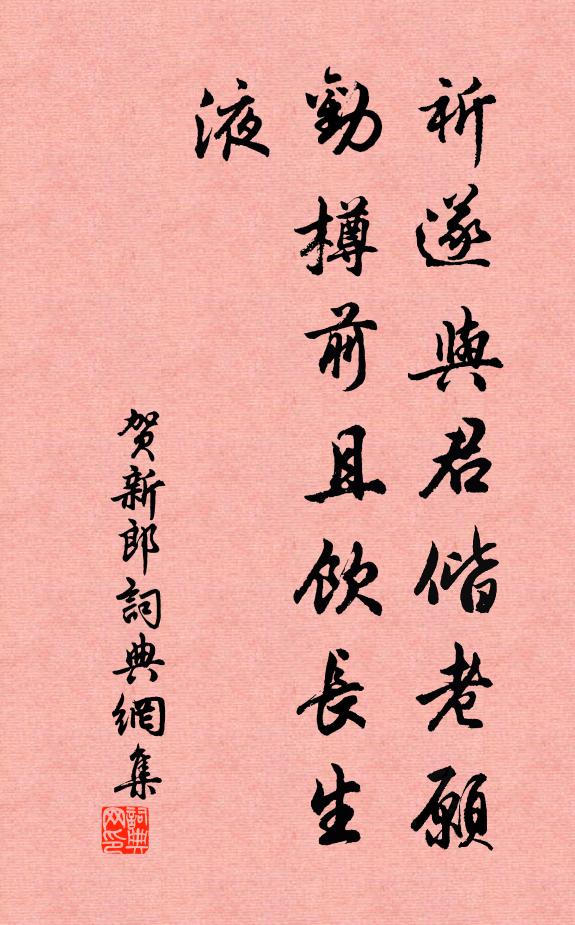 祈遂與君偕老願
勸樽前且飲長生
液
贺新郎詞典網集
詞典网印